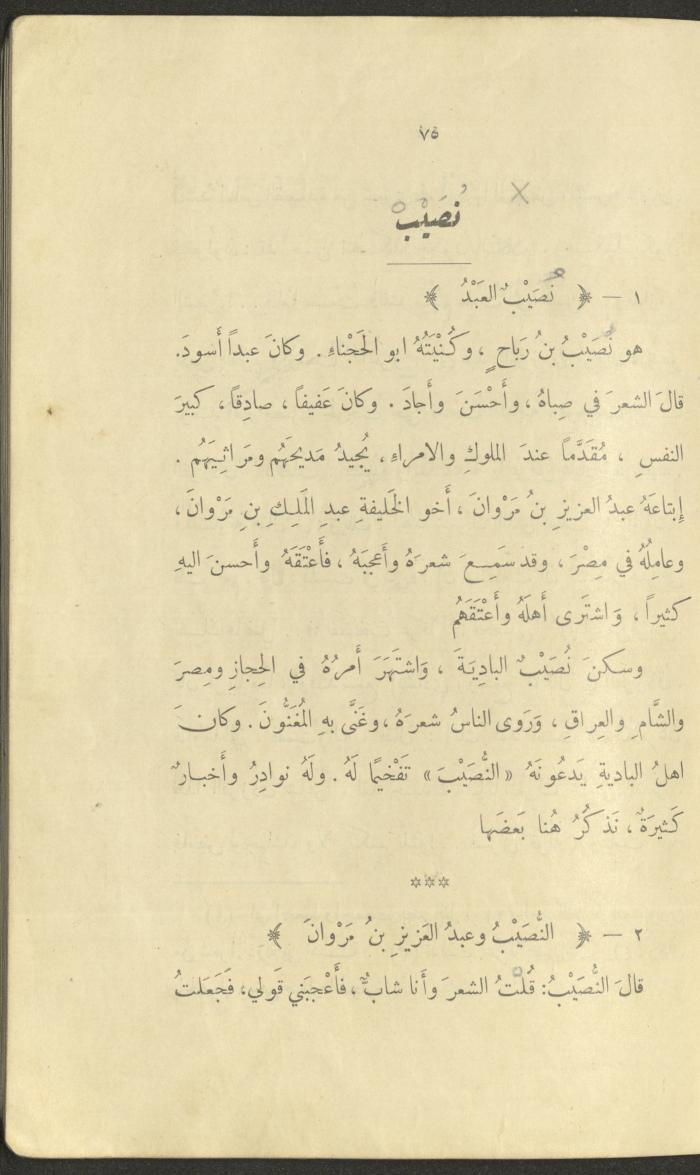 ٧٥
نُصَيْبْ
١ — ﴿ نُصَيْبٌ العَبْدُ ﴾
هو نُصَيْبُ بنُ رَبَاحٍ ، وكُنْيَتُهُ ابو الحَجْناءِ . وكانَ عبداً أَسودَ.
قالَ الشعرَ في صِباهُ ، وأَحْسَنَ وأَجادَ . وكانَ عَفيفاً ، صادِقاً ، كبيرَ
النفسِ ، مُقَدَّماً عندَ الملوكِ والامراءِ ، يُجيدُ مَديحَهُم ومَراثِيَهُم .
إِبتاعَهُ عبدُ العزيزِ بنُ مَرْوانَ ، أَخو الخَليفةِ عبدِ المَلِكِ بنِ مَرْوانَ ،
وعامِلُهُ في مِصْرَ ، وقد سَمِعَ شعرَهُ وأَعجَبَهُ ، فأَعْتَقَهُ وأَحسنَ اليهِ
كثيراً ، وَاشتَرى أَهلَهُ وأَعْتَقَهُم
وسكنَ نُصَيْبٌ البادِيَةَ ، وَاشتَهَرَ أَمرُهُ في الحِجازِ ومِصرَ
والشَّامِ والعِراقِ ، وَرَوى الناسُ شعرَهُ ، وغَنَّى بهِ المُغَنُّونَ . وكانَ
اهلُ الباديةِ يَدعُونَهُ «النُّصَيْبَ» تَفْخيمًا لَهُ . ولَهُ نوادِرُ وأَخبارٌ
كَثيرَةٌ ، نَذكُرُ هُنا بَعضَها
***
٢ — ﴿ النُّصَيْبُ وعبدُ العَزيزِ بنُ مَرْوانَ ﴾
قالَ النُّصَيْبُ: قُلْتُ الشعرَ وأَنا شابٌّ ، فأَعْجَبَني قَولي، فَجَعَلتُ